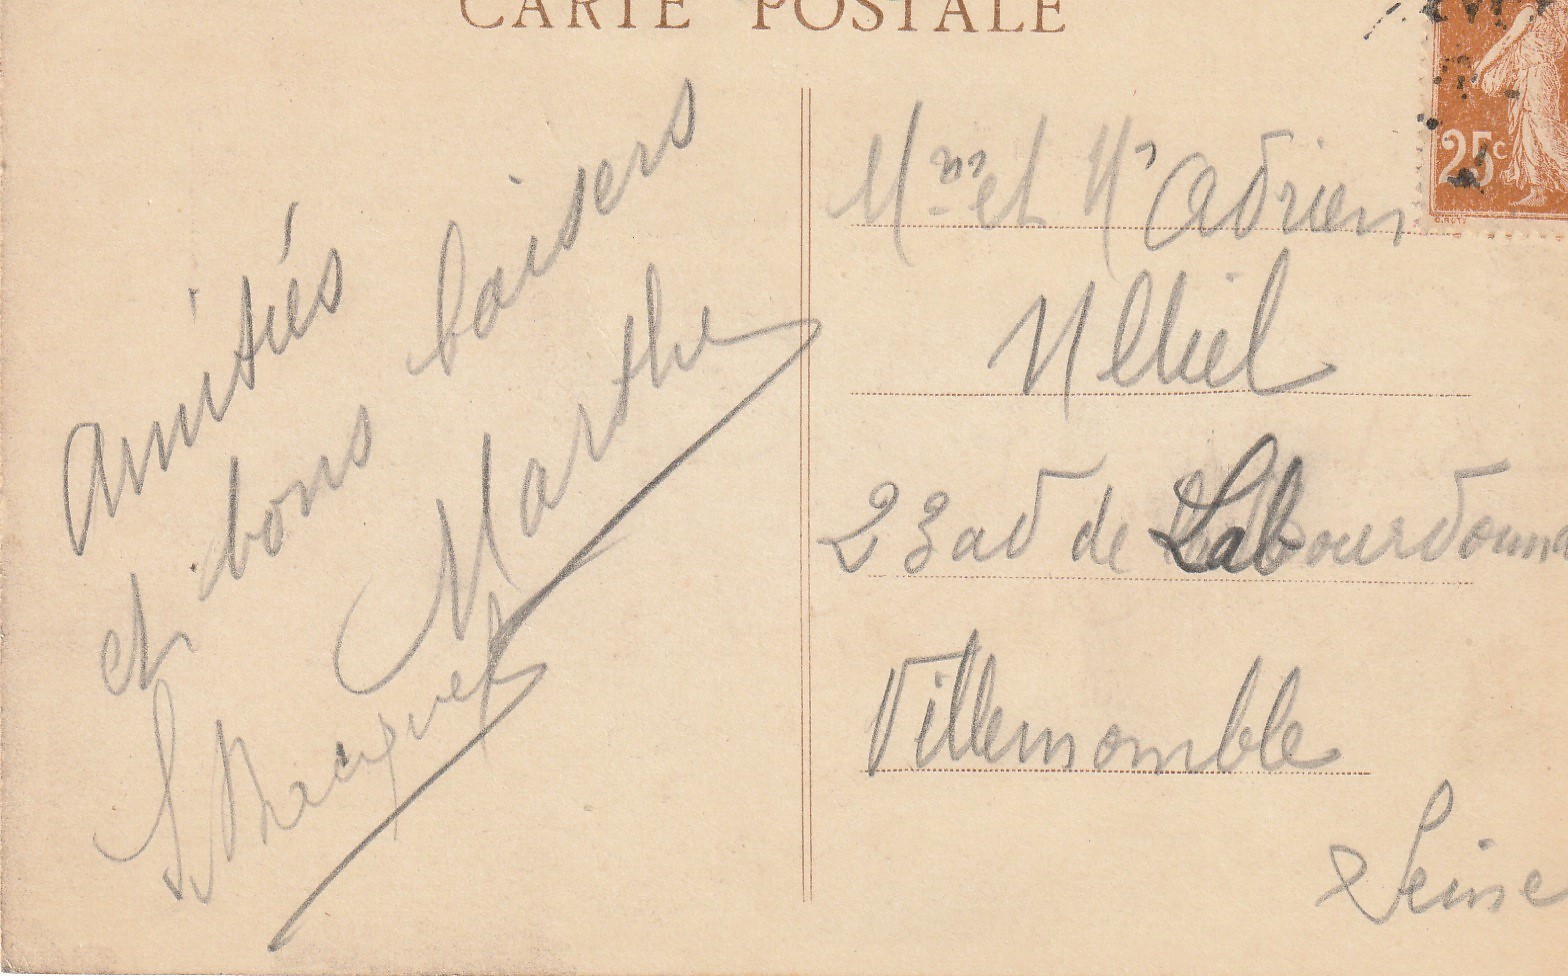 CARTE POSTALE
amitiés
et bons baisers
Marthe
25c
Mme et Mr Adrien
23 ad de Labourdonna
Villemomble
Seine